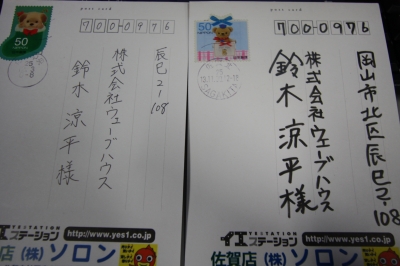 post card
50
7000976
辰巳21-108
株式会社ウェーブハウス
鈴木涼平様
YESTATION
イエステーション http://www.yes1.co.jp
店 (株)ソロン
post card
50
7000976
岡山市北区辰巳21-108
株式会社ウェーブハウス
鈴木涼平様
YESTATION
イエステーション http://www.yes1.co.jp
佐賀店 (株)ソロン